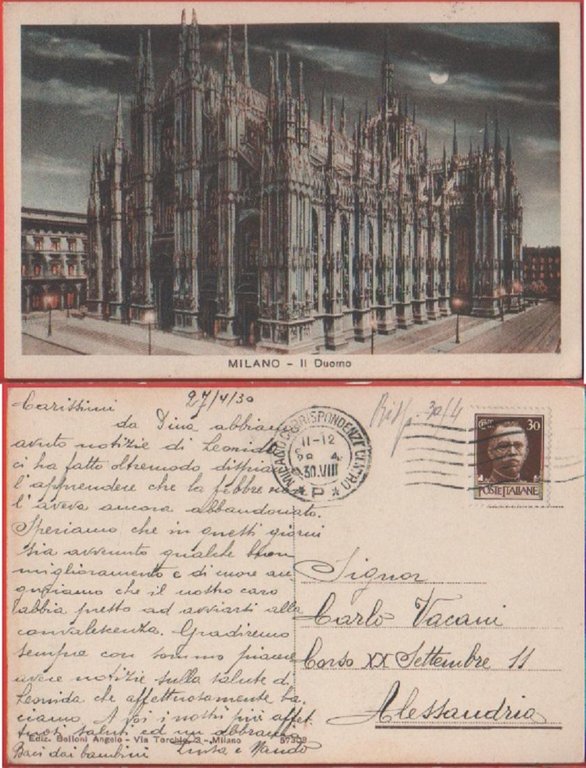 MILANO - Il Duomo
27/4/30
Carissimi
da Dina abbiamo
avuto notizie di Leonida
ci ha fatto oltremodo dispia
l'apprendere che la febbre non
l'aveva ancora abbandonato.
Speriamo che in questi giorni
sia avvenuto qualche buon
miglioramento e di cuore au
guriamo che il nostro caro
abbia presto ad avviarsi alla
convalescenza. Gradiremo
sempre con sommo piacere
avere notizie sulla salute di
Leonida che affettuosamente ba
ciamo. A voi i nostri più affet
tuosi saluti ed un abbraccio
Baci dai bambini
e Nando
Ediz. Belloni Angelo - Via Torchio, 3 - Milano
Risp. 30/4
MILANO CORRISPONDENZE CENTRO
11-12
4
30.VIII
* P *
30
POSTE ITALIANE
Signor
Carlo Vacani
Corso XX Settembre 11
Alessandria